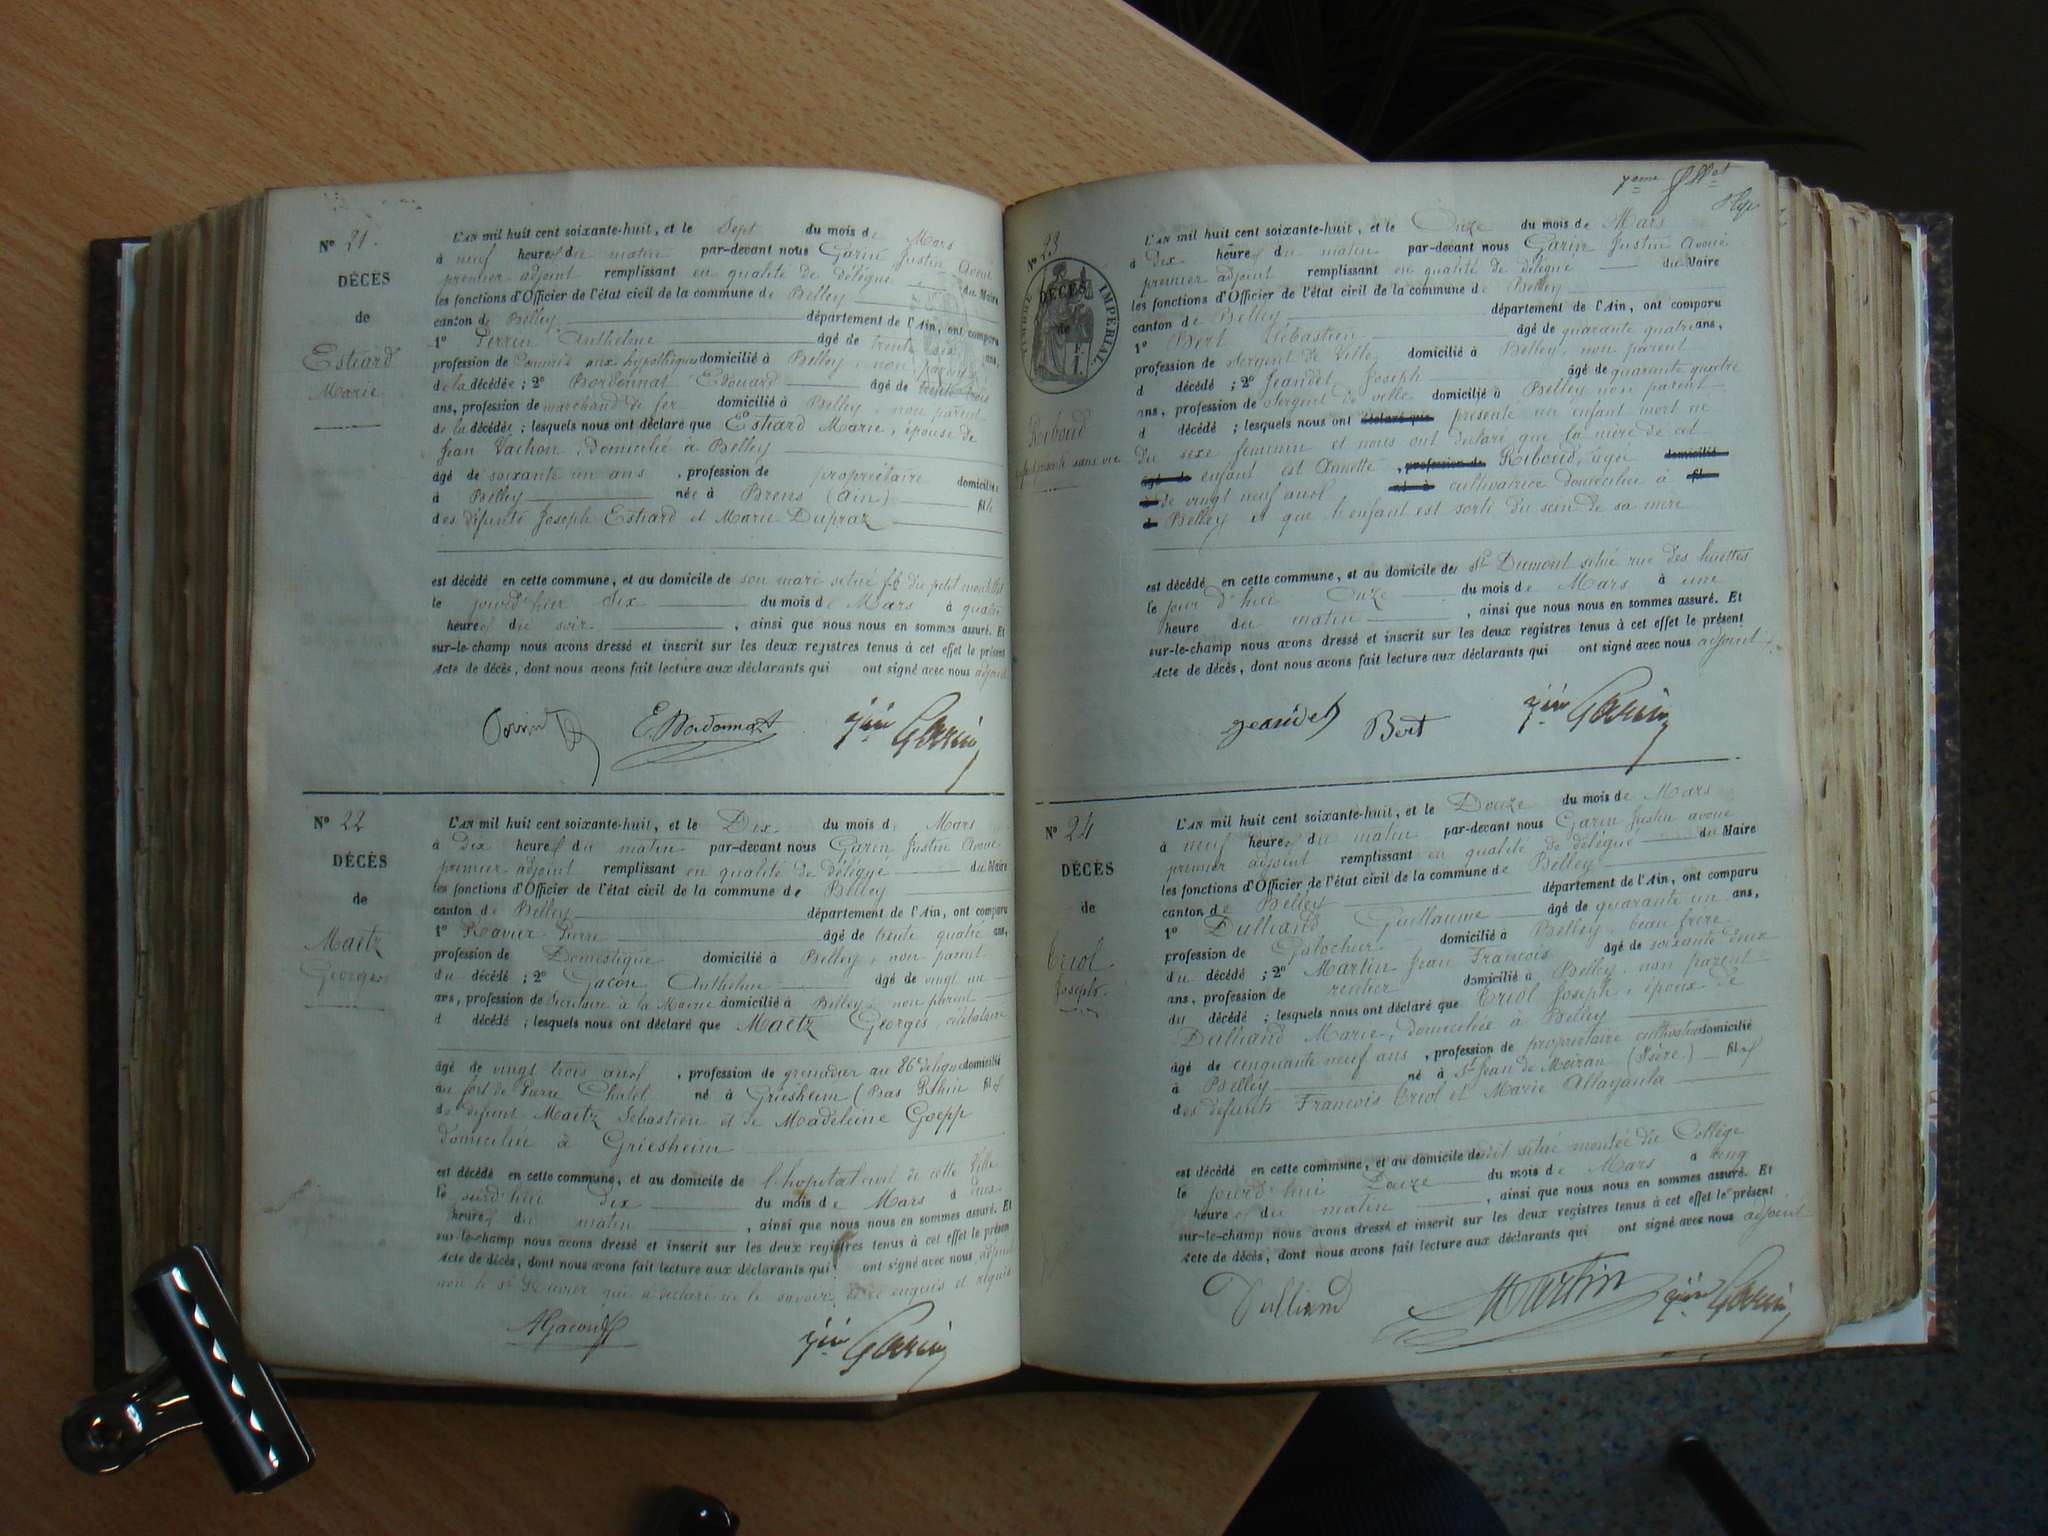 N° 21.
DÉCÈS
de
Estiard
Marie
L'AN mil huit cent soixante-huit, et le Sept du mois de Mars
à neuf heures du matin par-devant nous Garin Justin Avoué
premier adjoint remplissant en qualité de délégué du Maire
les fonctions d'Officier de l'état civil de la commune de Belley
canton de Belley département de l'Ain, ont comparu
1° Perrin Anthelme âgé de trente six ans,
profession de Commis aux hypothèques domicilié à Belley, non parent
de la décédée ; 2° Bordonnat Edouard âgé de trente trois
ans, profession de marchand de fer domicilié à Belley, non parent
de la décédée ; lesquels nous ont déclaré que Estiard Marie, épouse de
Jean Vachon, domicilié à Belley
âgé de soixante un ans , profession de propriétaire domiciliée
à Belley née à Brens (Ain) fille
des défunts Joseph Estiard et Marie Dupraz
est décédé en cette commune, et au domicile de son mari situé du petit
le jourd'hier Six du mois de Mars à quatre
heures du soir , ainsi que nous nous en sommes assuré. Et
sur-le-champ nous avons dressé et inscrit sur les deux registres tenus à cet effet le présent
Acte de décès, dont nous avons fait lecture aux déclarants qui ont signé avec nous adjoint
E. Bordonnat Garin
N° 22
DÉCÈS
de
Maetz
Georges
L'AN mil huit cent soixante-huit, et le Dix du mois de Mars
à Dix heures du matin par-devant nous Garin Justin Avoué
premier adjoint remplissant en qualité de délégué du Maire
les fonctions d'Officier de l'état civil de la commune de Belley
canton de Belley département de l'Ain, ont comparu
1° Ravier Pierre âgé de trente quatre ans,
profession de Domestique domicilié à Belley, non parent
du décédé ; 2° Gacon Anthelme âgé de vingt un
ans, profession de Secrétaire à la Mairie domicilié à Belley, non parent
d décédé ; lesquels nous ont déclaré que Maetz Georges, célibataire
âgé de vingt trois ans , profession de grenadier au 86e de ligne domicilié
au fort de Pierre Chatel né à Griesheim (Bas Rhin fils
de défunt Maetz Sébastien et de Madeleine Goepp
domiciliée à Griesheim
est décédé en cette commune, et au domicile de l'hopital civil de cette Ville
le jourd'hui dix du mois de Mars à deux
heures du matin , ainsi que nous nous en sommes assuré. Et
sur-le-champ nous avons dressé et inscrit sur les deux registres tenus à cet effet le présent
Acte de décès, dont nous avons fait lecture aux déclarants qui ont signé avec nous adjoint
non le sr Ravier qui a déclaré ne le savoir de ce enquis et requis
AGacon Garin
7eme
N° 23
DÉCÈS
de
TIMBRE IMPÉRIAL
1 F.
Riboud
enfant présenté sans vie
L'AN mil huit cent soixante-huit, et le Onze du mois de Mars
à Dix heures du matin par-devant nous Garin Justin Avoué
premier adjoint remplissant en qualité de délégué du Maire
les fonctions d'Officier de l'état civil de la commune de Belley
canton de Belley département de l'Ain, ont comparu
1° Bert Sébastien âgé de quarante quatre ans,
profession de Sergent de Ville domicilié à Belley, non parent
d décédé ; 2° Jeandet Joseph âgé de quarante quatre
ans, profession de Sergent de ville domicilié à Belley non parent
d décédé ; lesquels nous ont déclaré que présenté un enfant mort né
du sexe féminin et nous ont déclaré que la mère de cet
âgé de enfant est Annette , profession de Riboud, âgée domicilié
à de vingt neuf ans né à cultivatrice domiciliée à fil
d Belley et que l'enfant est sorti du sein de sa mère
est décédé en cette commune, et au domicile de sr Dumont situé rue des huettes
le jour d'hui Onze du mois de Mars à une
heure du matin , ainsi que nous nous en sommes assuré. Et
sur-le-champ nous avons dressé et inscrit sur les deux registres tenus à cet effet le présent
Acte de décès, dont nous avons fait lecture aux déclarants qui ont signé avec nous adjoint
Jeandet Bert Garin
N° 24
DÉCÈS
de
Criol
Joseph
L'AN mil huit cent soixante-huit, et le Douze du mois de Mars
à neuf heures du matin par-devant nous Garin Justin avoué
premier adjoint remplissant en qualité de délégué du Maire
les fonctions d'Officier de l'état civil de la commune de Belley
canton de Belley département de l'Ain, ont comparu
1° Dulliand Guillaume âgé de quarante un ans,
profession de Galochier domicilié à Belley, beau frère
du décédé ; 2° Martin Jean François âgé de soixante deux
ans, profession de rentier domicilié à Belley, non parent
du décédé ; lesquels nous ont déclaré que Criol Joseph, époux de
Dulliand Marie, domiciliée à Belley
âgé de cinquante neuf ans , profession de propriétaire cultivateur domicilié
à Belley né à St Jean de Moiran (Isère) fils
des défunts François Criol et Marie Allayaula
est décédé en cette commune, et au domicile de dit situé montée du Collège
le jourd'hui Douze du mois de Mars à cinq
heures du matin , ainsi que nous nous en sommes assuré. Et
sur-le-champ nous avons dressé et inscrit sur les deux registres tenus à cet effet le présent
Acte de décès, dont nous avons fait lecture aux déclarants qui ont signé avec nous adjoint
Dulliand Martin Garin